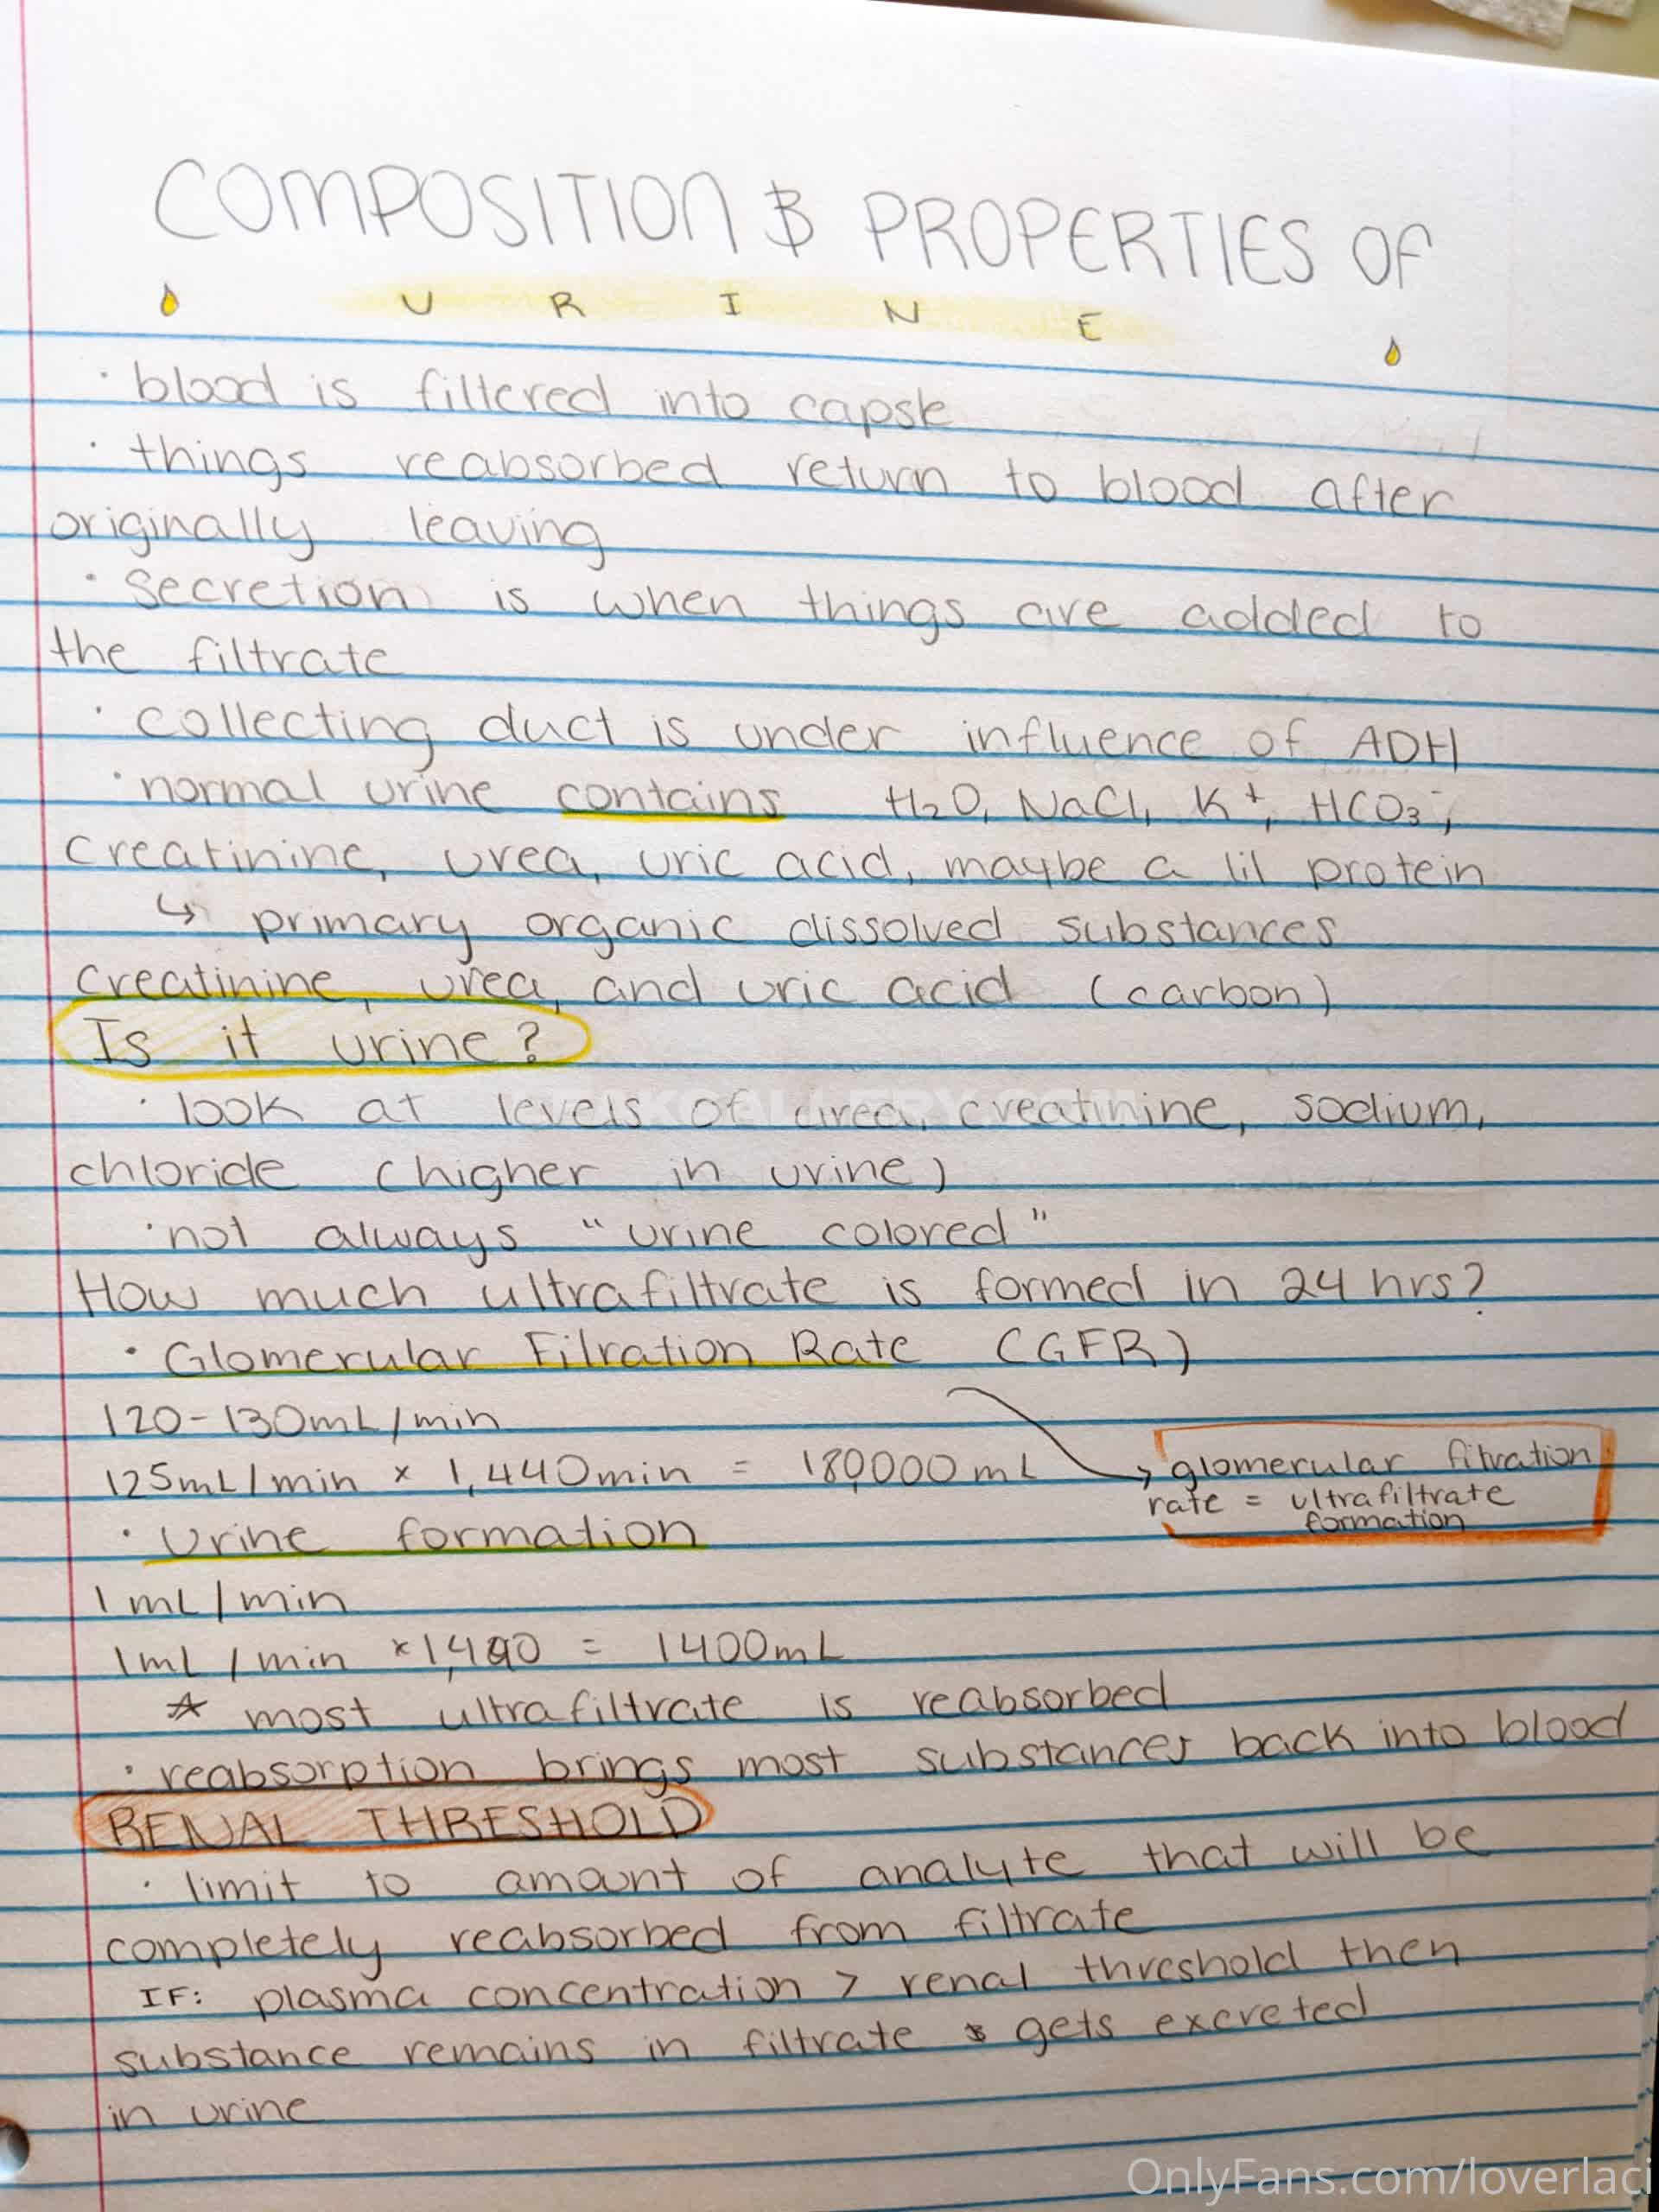 COMPOSITION & PROPERTIES OF
URINE
· blood is filtered into capsle
· things reabsorbed return to blood after
originally leaving
· secretion is when things are added to
the filtrate
· collecting duct is under influence of ADH
· normal urine contains H₂O, NaCl, K⁺, HCO₃⁻,
creatinine, urea, uric acid, maybe a lil protein
↳ primary organic dissolved substances
creatinine, urea, and uric acid (carbon)
Is it urine?
· look at levels of urea, creatinine, sodium,
chloride (higher in urine)
· not always "urine colored"
How much ultrafiltrate is formed in 24 hrs?
· Glomerular Filration Rate (GFR)
120-130mL/min
125mL/min x 1,440min = 180,000 mL
→ glomerular filtration
rate = ultrafiltrate
formation
· Urine formation
1 mL/min
1mL/min x 1,440 = 1400mL
* most ultrafiltrate is reabsorbed
· reabsorption brings most substances back into blood
RENAL THRESHOLD
· limit to amount of analyte that will be
completely reabsorbed from filtrate
IF: plasma concentration > renal threshold then
substance remains in filtrate & gets excreted
in urine
OnlyFans.com/loverlaci